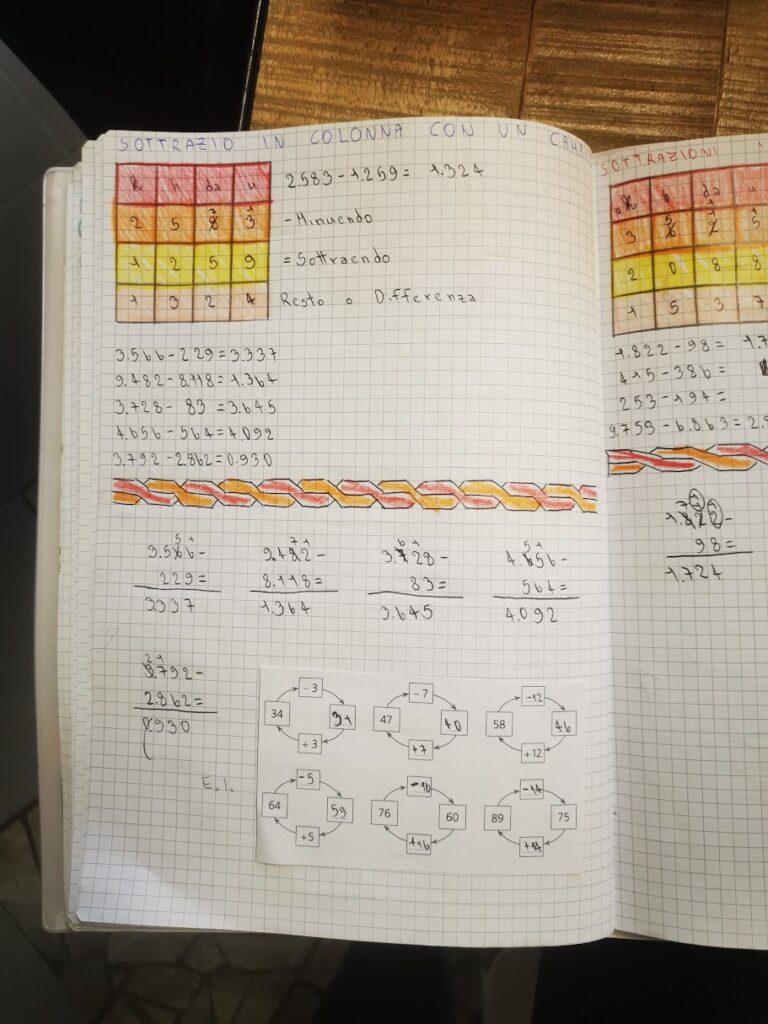 SOTTRAZIO IN COLONNA CON UN
K h da u
2 5 8 7 3 1
1 2 5 9
1 3 2 4
2583-1.259= 1.324
-Minuendo
=Sottraendo
Resto o Differenza
3.566-229=3.337
9.482-8.118=1.364
3.728- 83 =3.645
4.656-564=4.092
3.792-2.862=0.930
5 1
3.566-
229=
3337
7 1
9.482-
8.118=
1.364
6 1
3.728-
83=
3.645
5 1
4.656-
564=
4.092
2 1
3.792-
2.862=
0.930
E.I.
-3
34 31
+3
-7
47 40
+7
-12
58 46
+12
-5
64 59
+5
-16
76 60
+16
-14
89 75
+14
SOTTRAZIONI
K h da u
3 6 5 2 1 5 1
2 0 8 8
1 5 3 7
1.822-98= 1.7
415-386=
253-194=
9.759-6.863=2.9
7 1 1
1.822-
98=
1.724